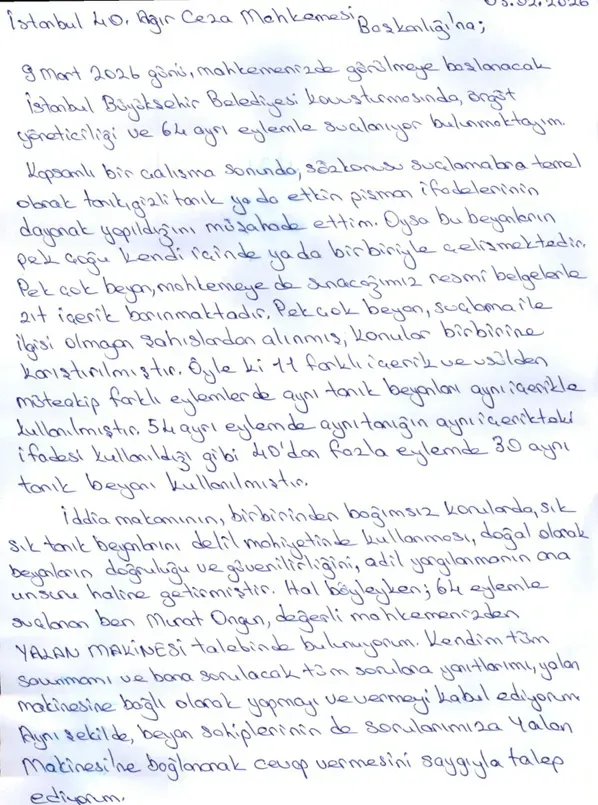 03.02.2026
İstanbul 40. Ağır Ceza Mahkemesi Başkanlığı'na;
9 Mart 2026 günü, mahkemenizde görülmeye başlanacak
İstanbul Büyükşehir Belediyesi kovuşturmasında, örgüt
yöneticiliği ve 64 ayrı eylemle suçlanıyor bulunmaktayım.
Kapsamlı bir çalışma sonunda, sözkonusu suçlamalara temel
olarak tanık, gizli tanık ya da etkin pişman ifadelerinin
dayanak yapıldığını müşahade ettim. Oysa bu beyanların
pek çoğu kendi içinde ya da birbiriyle çelişmektedir.
Pek çok beyan, mahkemeye de sunacağımız resmi belgelerle
zıt içerik barınmaktadır. Pek çok beyan, suçlama ile
ilgisi olmayan şahıslardan alınmış, konular birbirine
karıştırılmıştır. Öyle ki 11 farklı içerik ve usülden
müteakip farklı eylemlerde aynı tanık beyanları aynı içerikle
kullanılmıştır. 54 ayrı eylemde aynı tanığın aynı içerikteki
ifadesi kullanıldığı gibi 40'dan fazla eylemde 30 aynı
tanık beyanı kullanılmıştır.
İddia makamının, birbirinden bağımsız konularda, sık
sık tanık beyanlarını delil mahiyetinde kullanması, doğal olarak
beyanların doğruluğu ve güvenilirliğini, adil yargılanmanın ana
unsuru haline getirmiştir. Hal böyleyken; 64 eylemle
suçlanan ben Murat Ongun, değerli mahkemenizden
YALAN MAKİNESİ talebinde bulunuyorum. Kendim tüm
savunmamı ve bana sorulacak tüm sorulara yanıtlarımı, yalan
makinesine bağlı olarak yapmayı ve vermeyi kabul ediyorum.
Aynı şekilde, beyan sahiplerinin de sorularımıza Yalan
Makinesi'ne bağlanarak cevap vermesini saygıyla talep
ediyorum.